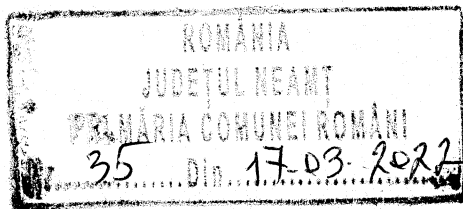 ROMÂNIA
JUDEȚUL NEAMȚ
PRIMĂRIA COMUNEI ROMÂNI
Nr. 35 Din 17-03-2022